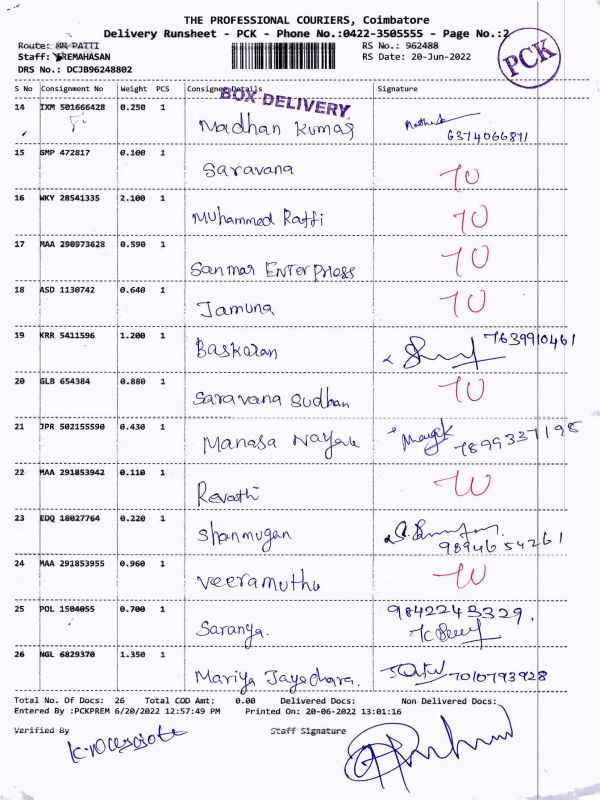 THE PROFESSIONAL COURIERS, Coimbatore
Delivery Runsheet - PCK - Phone No.:0422-3505555 - Page No.:2
Route: PATTI
RS No.: 962488
Staff: PREMAHASAN
RS Date: 20-Jun-2022
PCK
DRS No.: DCJB96248802
S No Consignment No Weight PCS Consignee Details Signature
BOX DELIVERY
14 IXM 501666428 0.250 1 Madhan Kumar 6374066871
15 GMP 472817 0.100 1 Saravana
16 WKY 28541335 2.100 1 Muhammed Raffi
17 MAA 290973628 0.590 1 Sanmar Enterprises
18 ASD 1130742 0.640 1 Jamuna
19 KRR 5411596 1.200 1 Baskaran 7639910461
20 GLB 654384 0.880 1 Saravana Sudhan
21 JPR 502155590 0.430 1 Manasa Nayak 7899337195
22 MAA 291853942 0.110 1 Revathi
23 EDQ 18027764 0.220 1 Shanmugan 9894654261
24 MAA 291853955 0.960 1 Veeramuthu
25 POL 1504055 0.700 1 Saranya. 9842243329.
26 NGL 6829370 1.350 1 Mariya Jayedhara. 7010793928
Total No. Of Docs: 26 Total COD Amt: 0.00 Delivered Docs: Non Delivered Docs:
Entered By :PCKPREM 6/20/2022 12:57:49 PM Printed On: 20-06-2022 13:01:16
Verified By Staff Signature